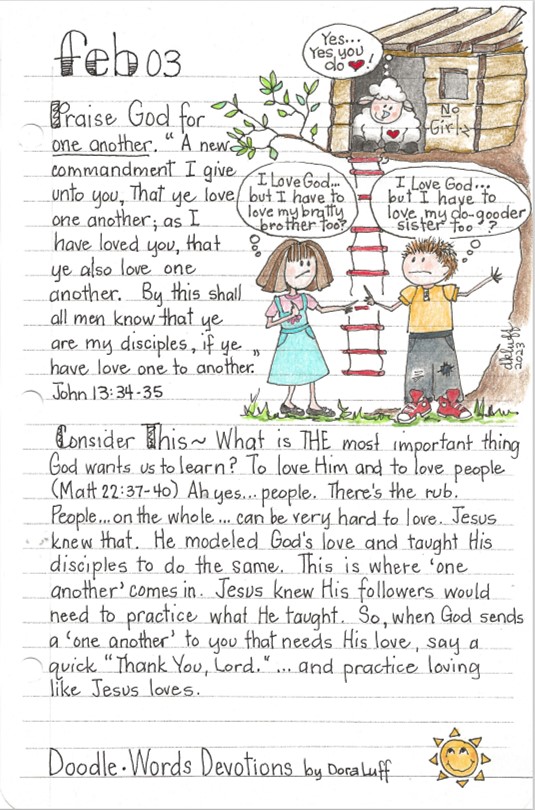 feb 03
Praise God for
one another. "A new
commandment I give
unto you, That ye love
one another; as I
have loved you, that
ye also love one
another. By this shall
all men know that ye
are my disciples, if ye
have love one to another."
John 13:34-35
Yes...
Yes, you
do ♥!
No
Girls
I Love God...
but I have to
love my bratty
brother too?
I Love God...
but I have to
love my do-gooder
sister too?
dkluff
2023
Consider This~ What is THE most important thing
God wants us to learn? To love Him and to love people
(Matt 22:37-40) Ah yes... people. There's the rub.
People... on the whole... can be very hard to love. Jesus
knew that. He modeled God's love and taught His
disciples to do the same. This is where 'one
another' comes in. Jesus knew His followers would
need to practice what He taught. So, when God sends
a 'one another' to you that needs His love, say a
quick "Thank You, Lord." ... and practice loving
like Jesus loves.
Doodle·Words Devotions by Dora Luff